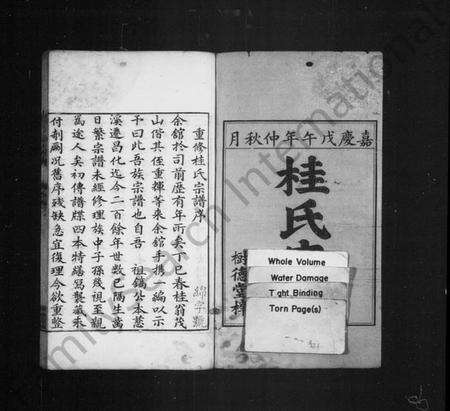 嘉慶戊午年仲秋月
桂氏
樹德堂梓
Whole Volume
Water Damage
Tight Binding
Torn Page(s)
重修桂氏宗譜序
余舘於司前歷有年所矣丁巳春桂翁茂
山偕其侄重揮等來余舘手携一編以示
予曰此吾族宗譜也自吾 祖鎬公本慈
溪遷昌化迄今二百餘年世數已隔生齒
日繁宗譜未經修理族中子孫幾視至親
為途人矣初傳譜牒四本特繕寫製藏未
付剞劂况舊序殘缺急宜復理今欲重整